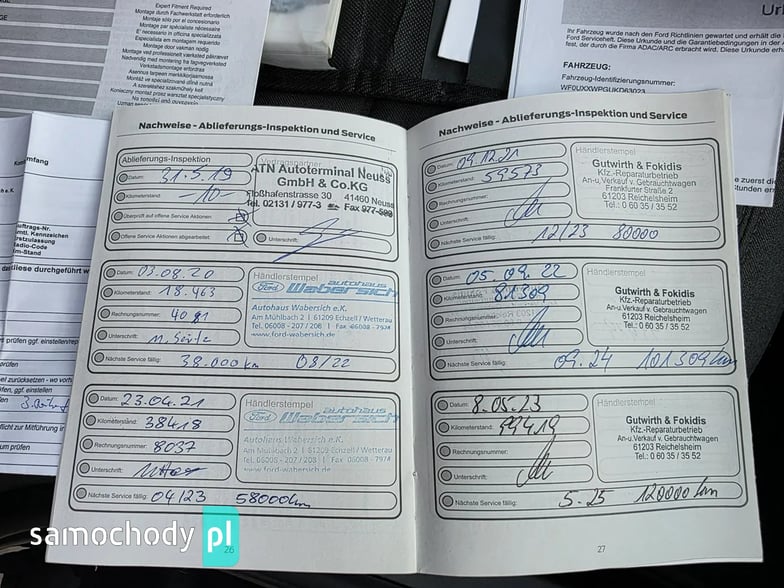 Expert Fitment Required
Montage durch Fachwerkstatt erforderlich
Montage par spécialiste nécessaire
E' necessario in officina specializzata
Especialista em montagem requerido
Montage door vakman nodig
Verkstadsmontage erfordras
Ihr Fahrzeug wurde nach den Ford Richlinien gewartet und erhält die
Ford Serviceheft. Diese Urkunde und die Garantiebedingungen in der
fest, der durch die Firma ADAC/ARC erbracht wird. Diese Urkunde
FAHRZEUG:
Fahrzeug-Identifizierungsnummer:
Nachweise - Ablieferungs-Inspektion und Service
Ablieferungs-Inspektion
Vertragspartner
Datum: 31.5.19
Kilometerstand: 10-
Überprüft auf offene Service Aktionen
Offene Service Aktionen abgearbeitet
Unterschrift:
ATN Autoterminal Neuss
GmbH & Co.KG
Floßhafenstrasse 30 41460 Neuss
Tel. 02131 / 977-3 Fax 977-599
Datum: 03.08.20
Kilometerstand: 18.463
Rechnungsnummer: 4081
Unterschrift:
Nächste Service fällig: 38.000 km 08/22
Händlerstempel
Ford autohaus
Wabersich
Autohaus Wabersich e.K.
Am Mühlbach 2 | 61209 Echzell / Wetterau
Tel. 06008 - 207 / 208 | Fax 06008 - 7974
www.ford-wabersich.de
Datum: 23.04.21
Kilometerstand: 38418
Rechnungsnummer: 8037
Unterschrift:
Nächste Service fällig: 04/23 58000km
Händlerstempel
Ford autohaus
Wabersich
Autohaus Wabersich e.K.
Am Mühlbach 2 | 61209 Echzell / Wetterau
Tel. 06008 - 207 / 208 | Fax 06008 - 7974
www.ford-wabersich.de
26
Nachweise - Ablieferungs-Inspektion und Service
Datum: 09.12.21
Kilometerstand: 59573
Rechnungsnummer:
Unterschrift:
Nächste Service fällig: 12/23 80000
Händlerstempel
Gutwirth & Fokidis
Kfz.-Reparaturbetrieb
An-u. Verkauf v. Gebrauchtwagen
Frankfurter Straße 2
61203 Reichelsheim
Tel.: 0 60 35 / 35 52
Datum: 05.09.22
Kilometerstand: 81309
Rechnungsnummer:
Unterschrift:
Nächste Service fällig: 09.24 101309km
Händlerstempel
Gutwirth & Fokidis
Kfz.-Reparaturbetrieb
An-u. Verkauf v. Gebrauchtwagen
61203 Reichelsheim
Tel.: 0 60 35 / 35 52
Datum: 8.05.23
Kilometerstand: 99419
Rechnungsnummer:
Unterschrift:
Nächste Service fällig: 5-25 120000 km
Händlerstempel
Gutwirth & Fokidis
Kfz.-Reparaturbetrieb
An-u. Verkauf v. Gebrauchtwagen
61203 Reichelsheim
Tel.: 0 60 35 / 35 52
27
samochody pl